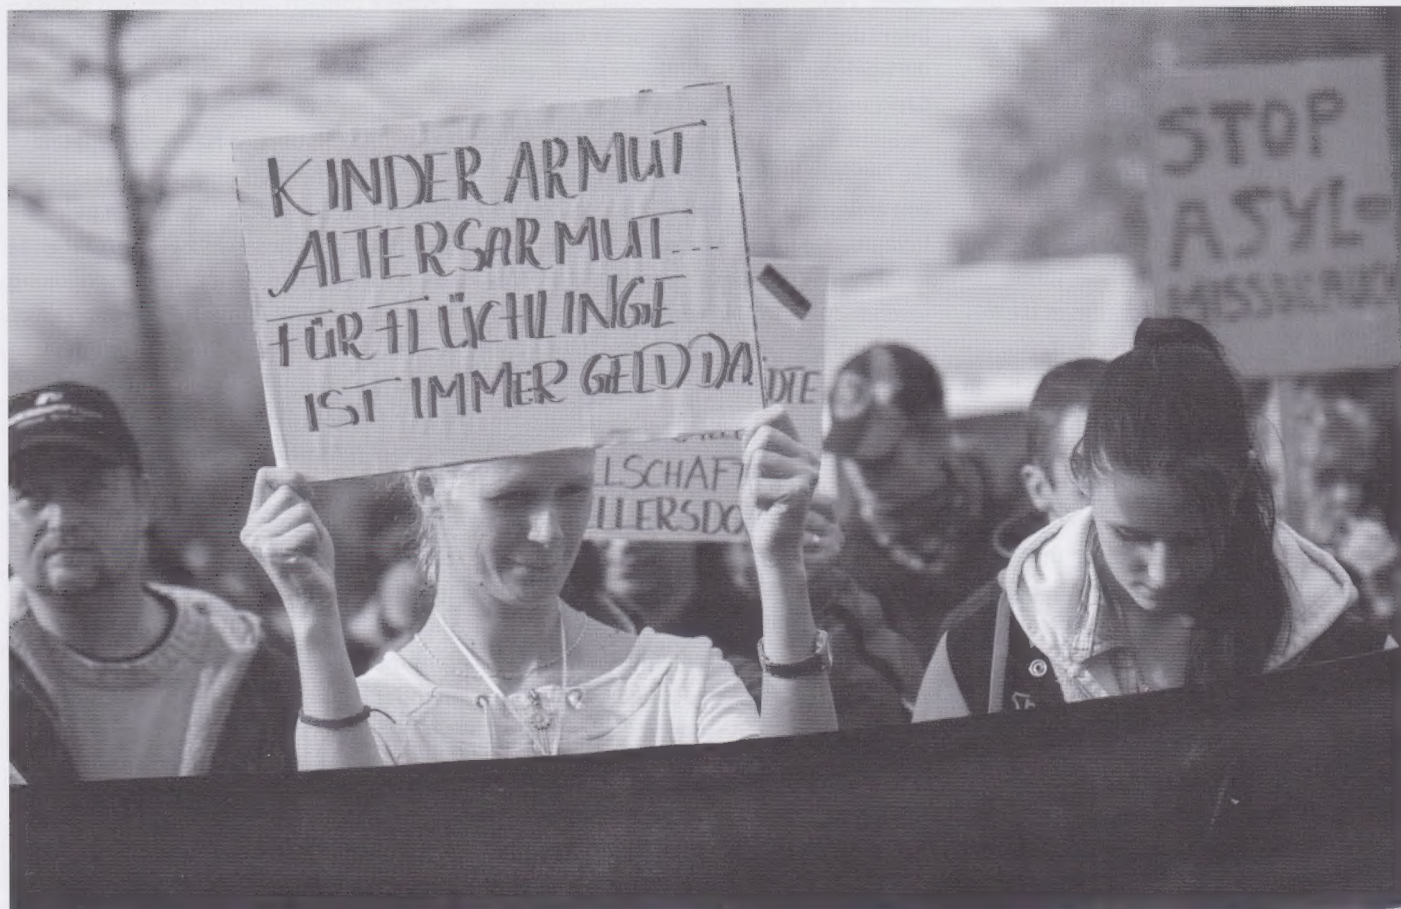 KINDERARMUT
ALTERSARMUT...
FÜR FLÜCHLINGE
IST IMMER GELD DA
DTE
LSCHAFT
LLERSDO
STOP
ASYL-
MISSBRAUCH